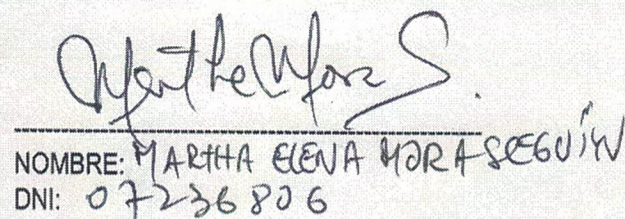 Martha Mora S.
NOMBRE: MARTHA ELENA MORA SCEGUÍN
DNI: 07236806